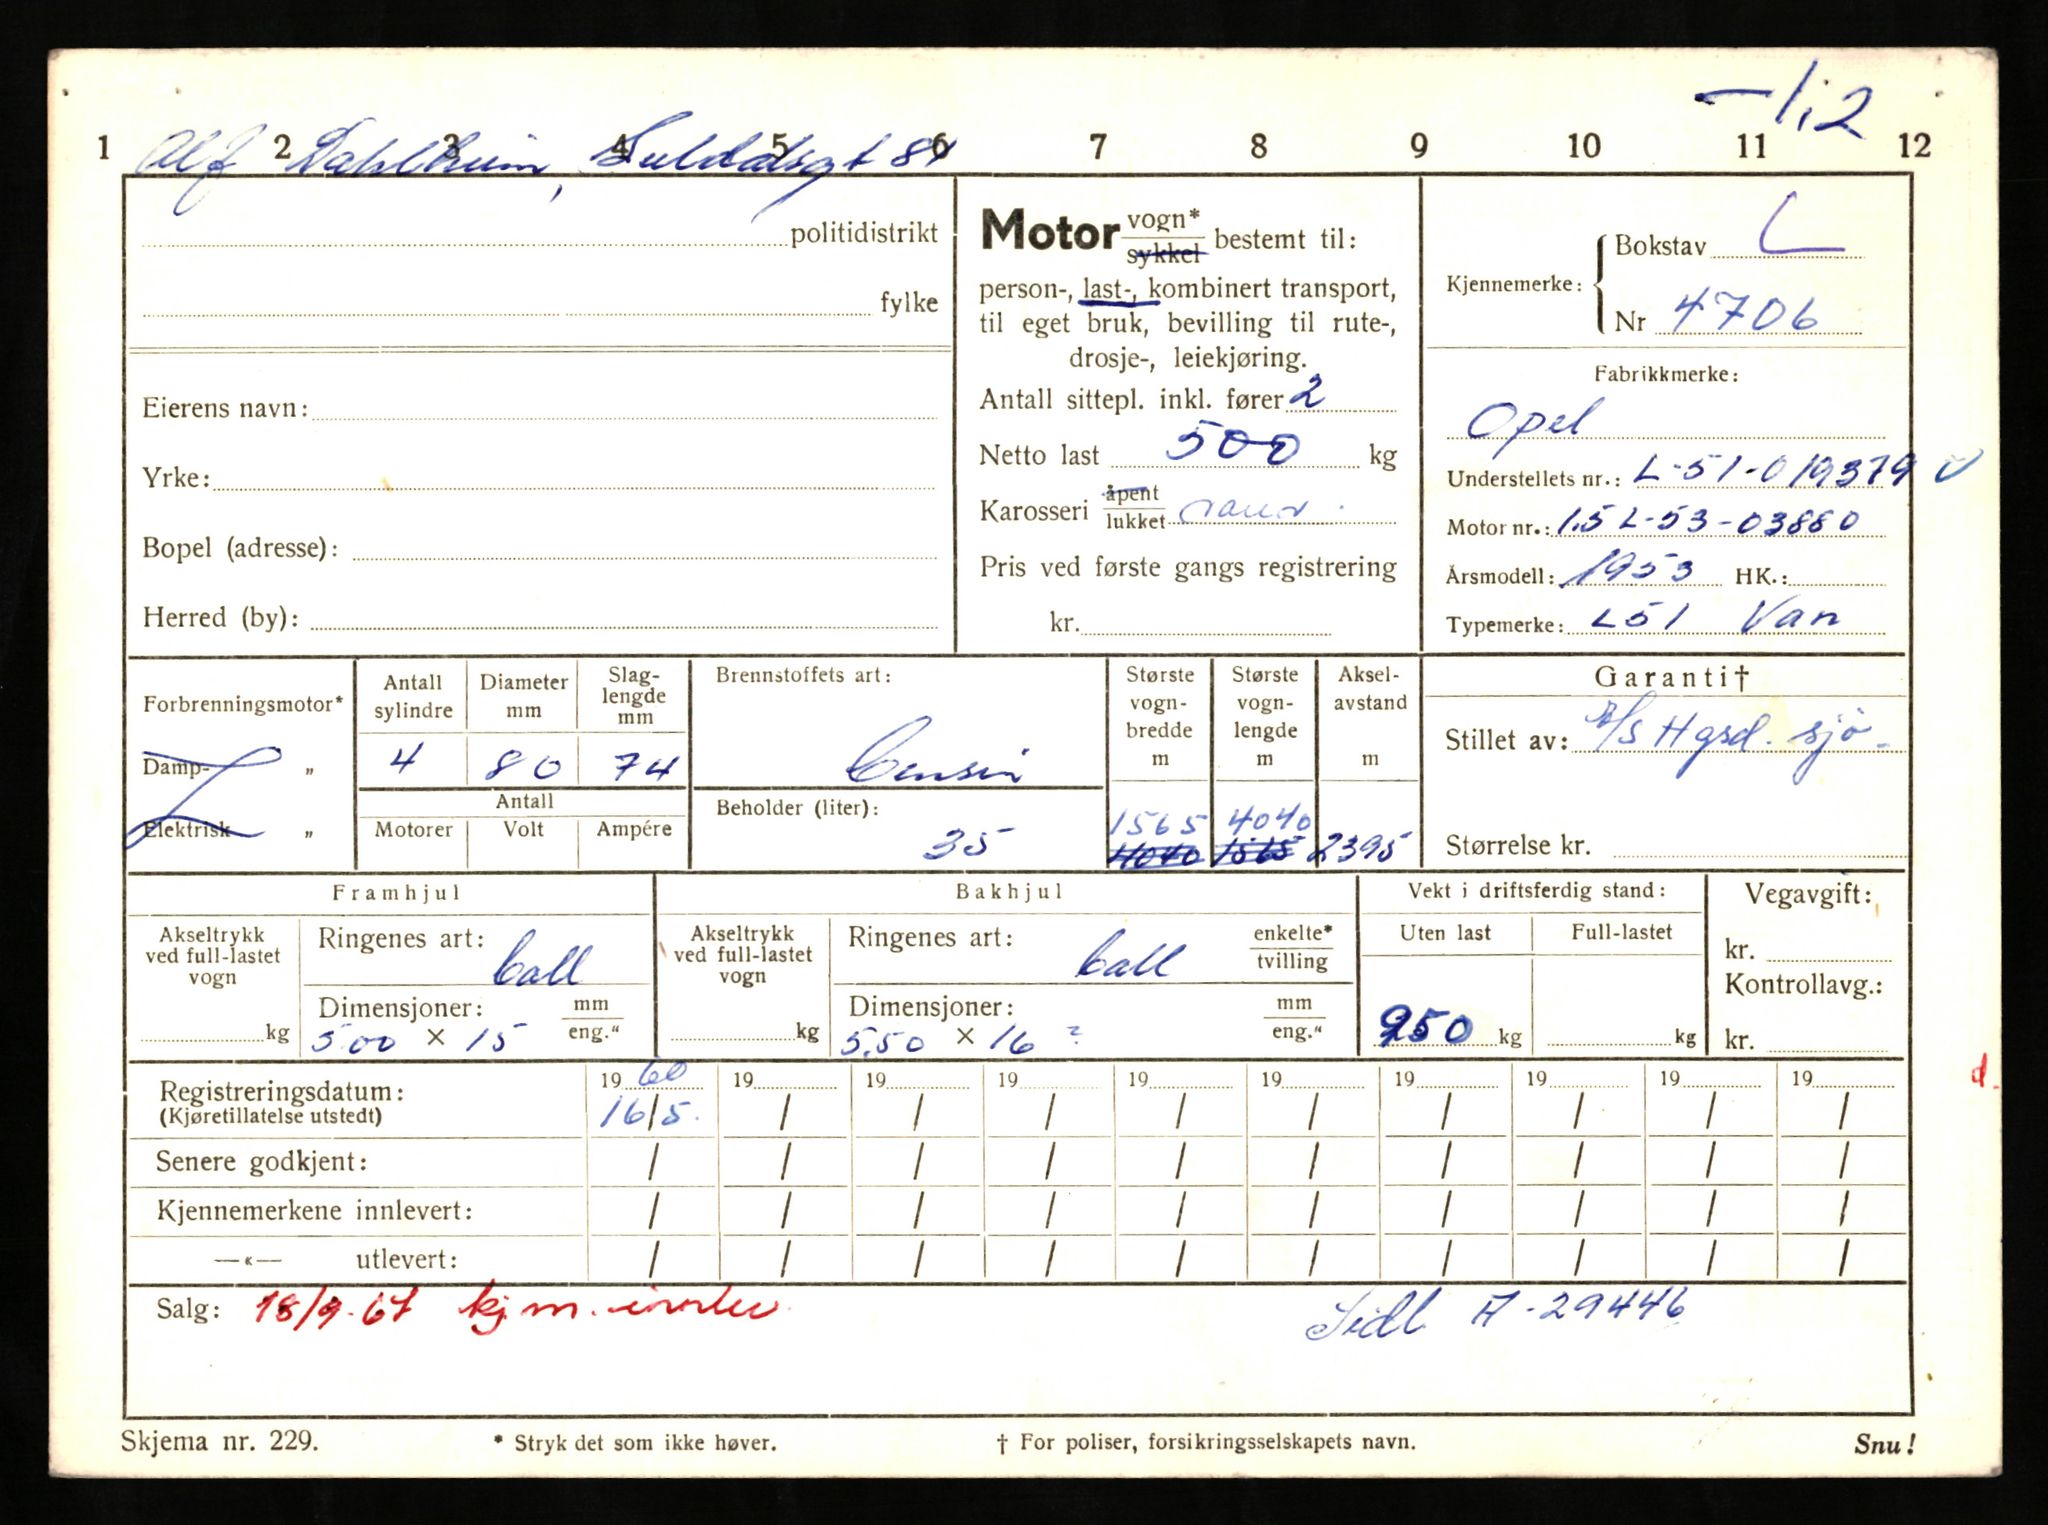 -1/12
1 2 3 4 5 6 7 8 9 10 11 12
Alf Dahlheim, Suldalsgt 84
politidistrikt
fylke
Eierens navn:
Yrke:
Bopel (adresse):
Herred (by):
Motor vogn* sykkel bestemt til:
person-, last-, kombinert transport,
til eget bruk, bevilling til rute-,
drosje-, leiekjøring.
Antall sittepl. inkl. fører 2
Netto last 500 kg
Karosseri åpent lukket
Pris ved første gangs registrering
kr.
Kjennemerke: Bokstav L
Nr 4706
Fabrikkmerke:
Opel
Understellets nr.: L-51-019379
Motor nr.: 1.5 L-53-03880
Årsmodell: 1953 HK.:
Typemerke: L51 Van
Forbrenningsmotor*
Damp- „
Elektrisk „
Antall sylindre
4
Diameter mm
80
Slag-lengde mm
74
Antall
Motorer Volt Ampére
Brennstoffets art:
Bensin
Beholder (liter):
35
Største vogn-bredde m
1565
4040
Største vogn-lengde m
4040
1565
Aksel-avstand m
2395
Garanti†
Stillet av: A/S Hgsd. sjø-
Størrelse kr.
Framhjul
Akseltrykk ved full-lastet vogn
kg
Ringenes art:
ball
Dimensjoner: mm eng."
5.00 × 15
Bakhjul
Akseltrykk ved full-lastet vogn
kg
Ringenes art: enkelte* tvilling
ball
Dimensjoner: mm eng."
5.50 × 16 ?
Vekt i driftsferdig stand:
Uten last Full-lastet
950 kg kg
Vegavgift:
kr.
Kontrollavg.:
kr.
Registreringsdatum: 1960 19 19 19 19 19 19 19 19 19
(Kjøretillatelse utstedt) 16/5. / / / / / / / / /
d.
Senere godkjent: / / / / / / / / / /
Kjennemerkene innlevert: / / / / / / / / / /
—«— utlevert: / / / / / / / / / /
Salg: 18/9-67 kj.m. innlev
Sidl A-29446
Skjema nr. 229. * Stryk det som ikke høver. † For poliser, forsikringsselskapets navn. Snu!